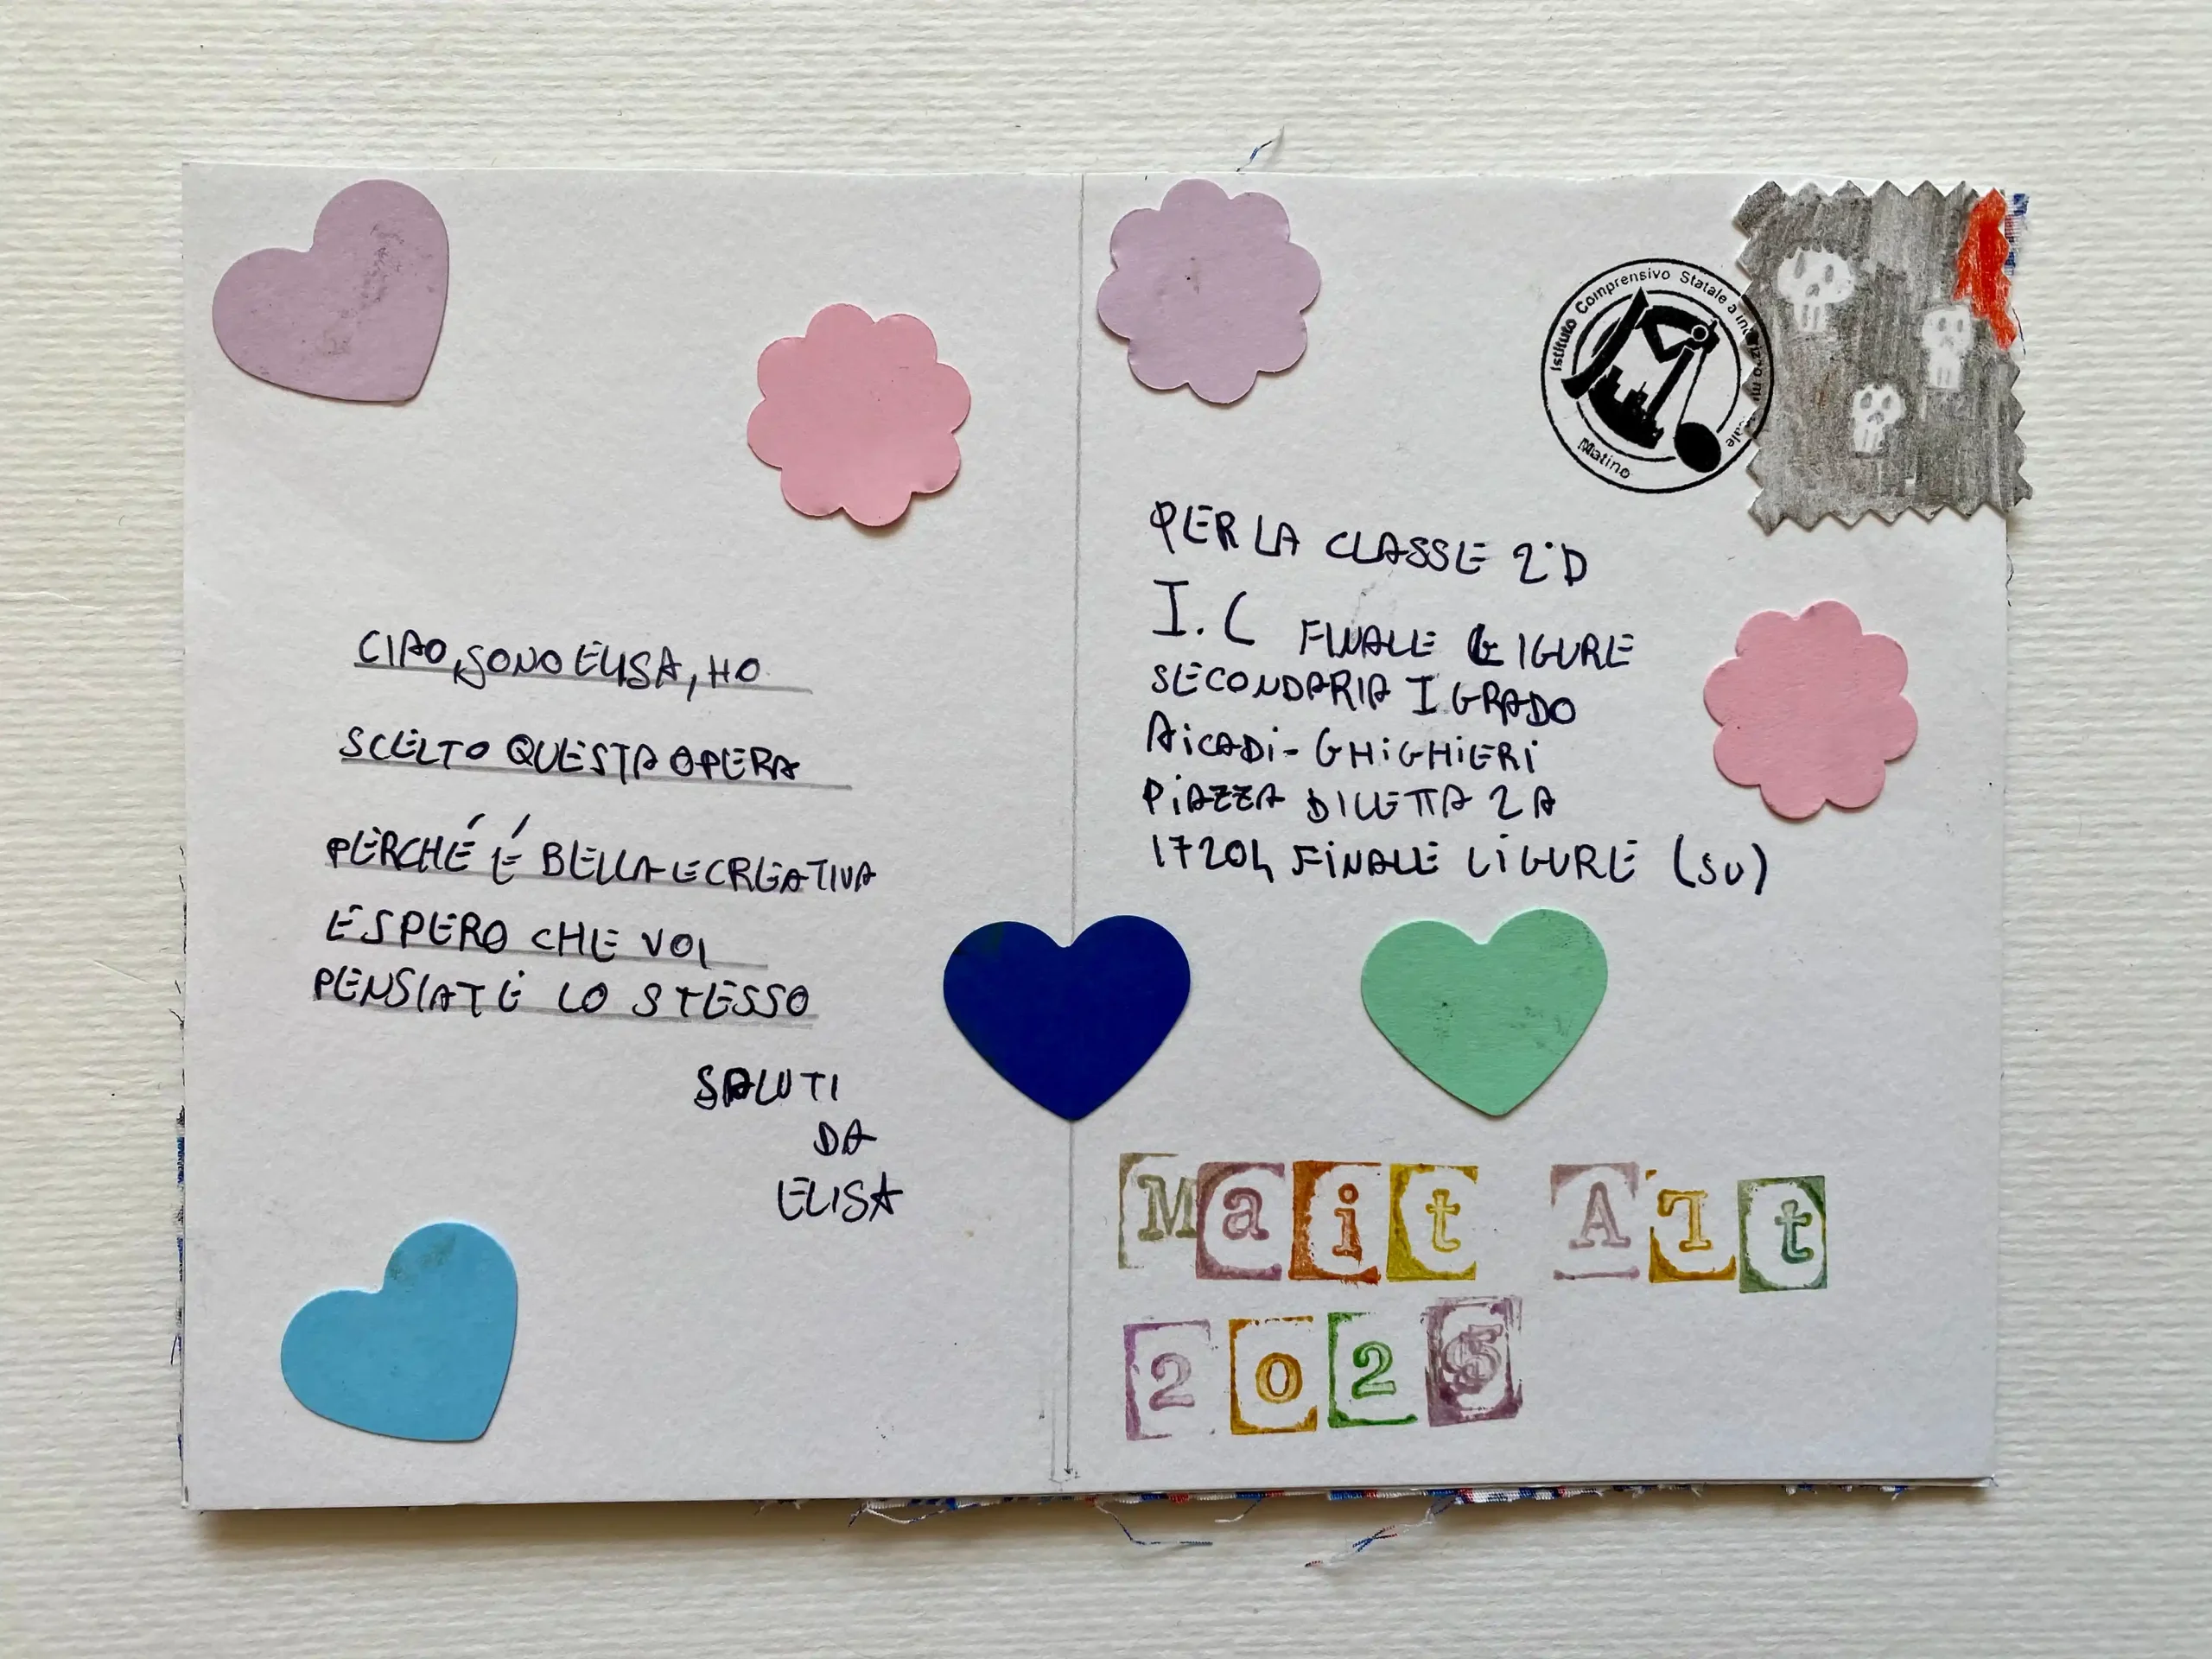 CIAO, SONO ELISA, HO
SCELTO QUESTA OPERA
PERCHÉ É BELLA E CREATIVA
ESPERO CHE VOI
PENSIATE LO STESSO
SALUTI
DA
ELISA
Istituto Comprensivo Statale a indirizzo musicale
Matino
PER LA CLASSE 2°D
I.C FINALE LIGURE
SECONDARIA I GRADO
AICADI-GHIGHIERI
PIAZZA DILETTA 2A
17204 FINALE LIGURE (SV)
Mait Art
2025